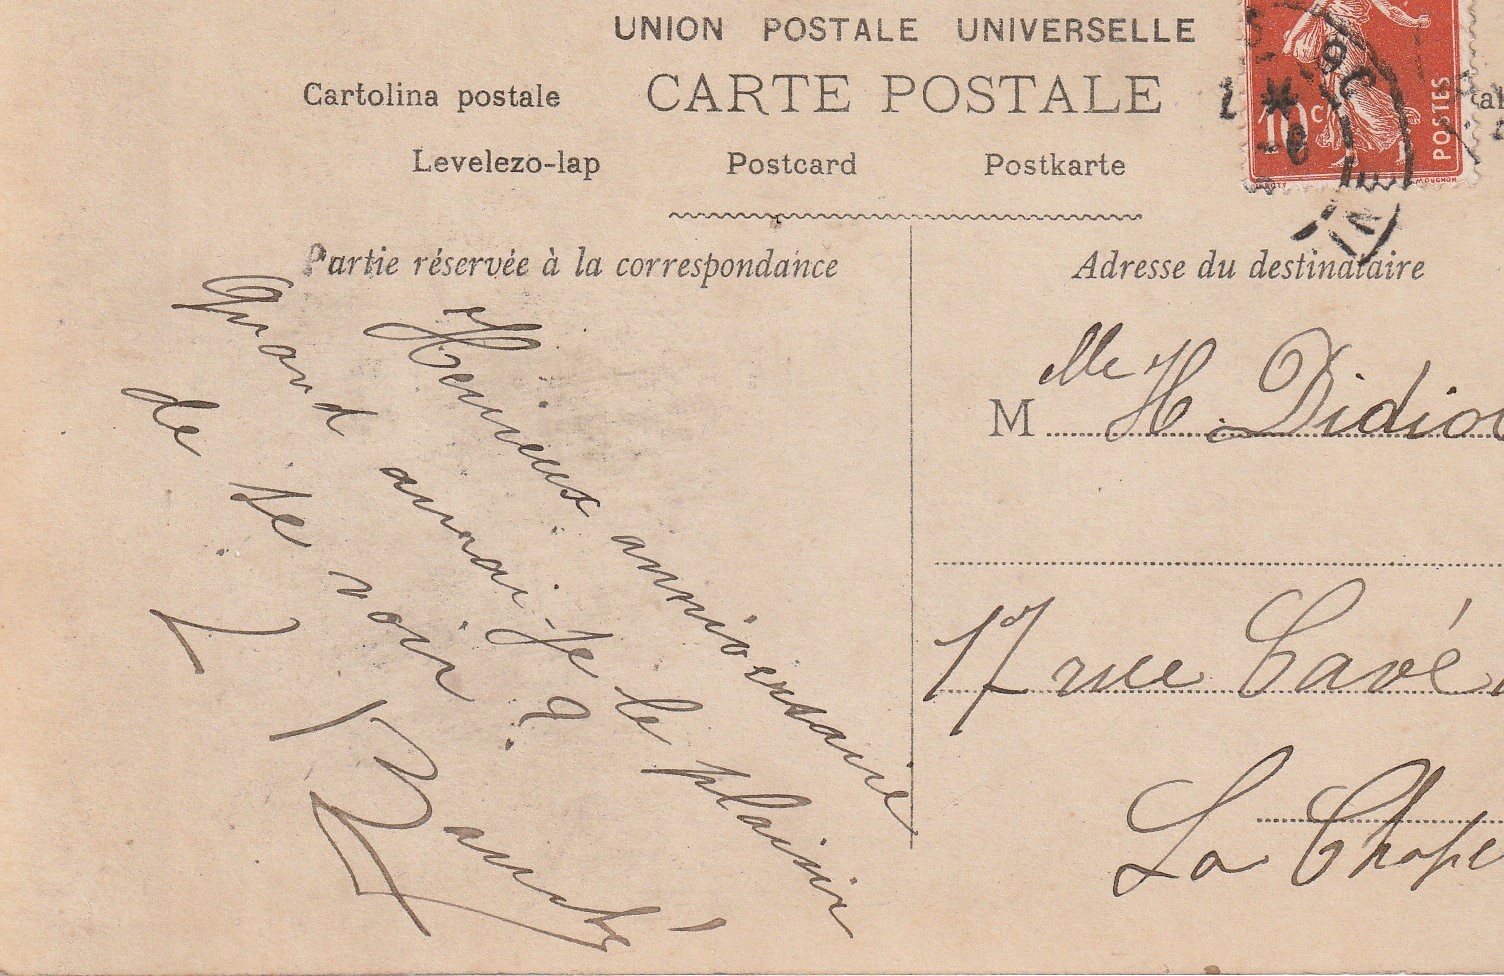 UNION POSTALE UNIVERSELLE
Cartolina postale CARTE POSTALE
Levelezo-lap Postcard Postkarte
10 c POSTES
MOUCHON
Partie réservée à la correspondance
Adresse du destinataire
Heureux anniversaire
Quand aurai-je le plaisir
de te voir ?
M lle H. Didio
17 rue Cavé
La Chape